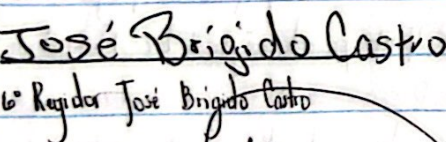 José Brígido Castro
6° Regidor José Brígido Castro